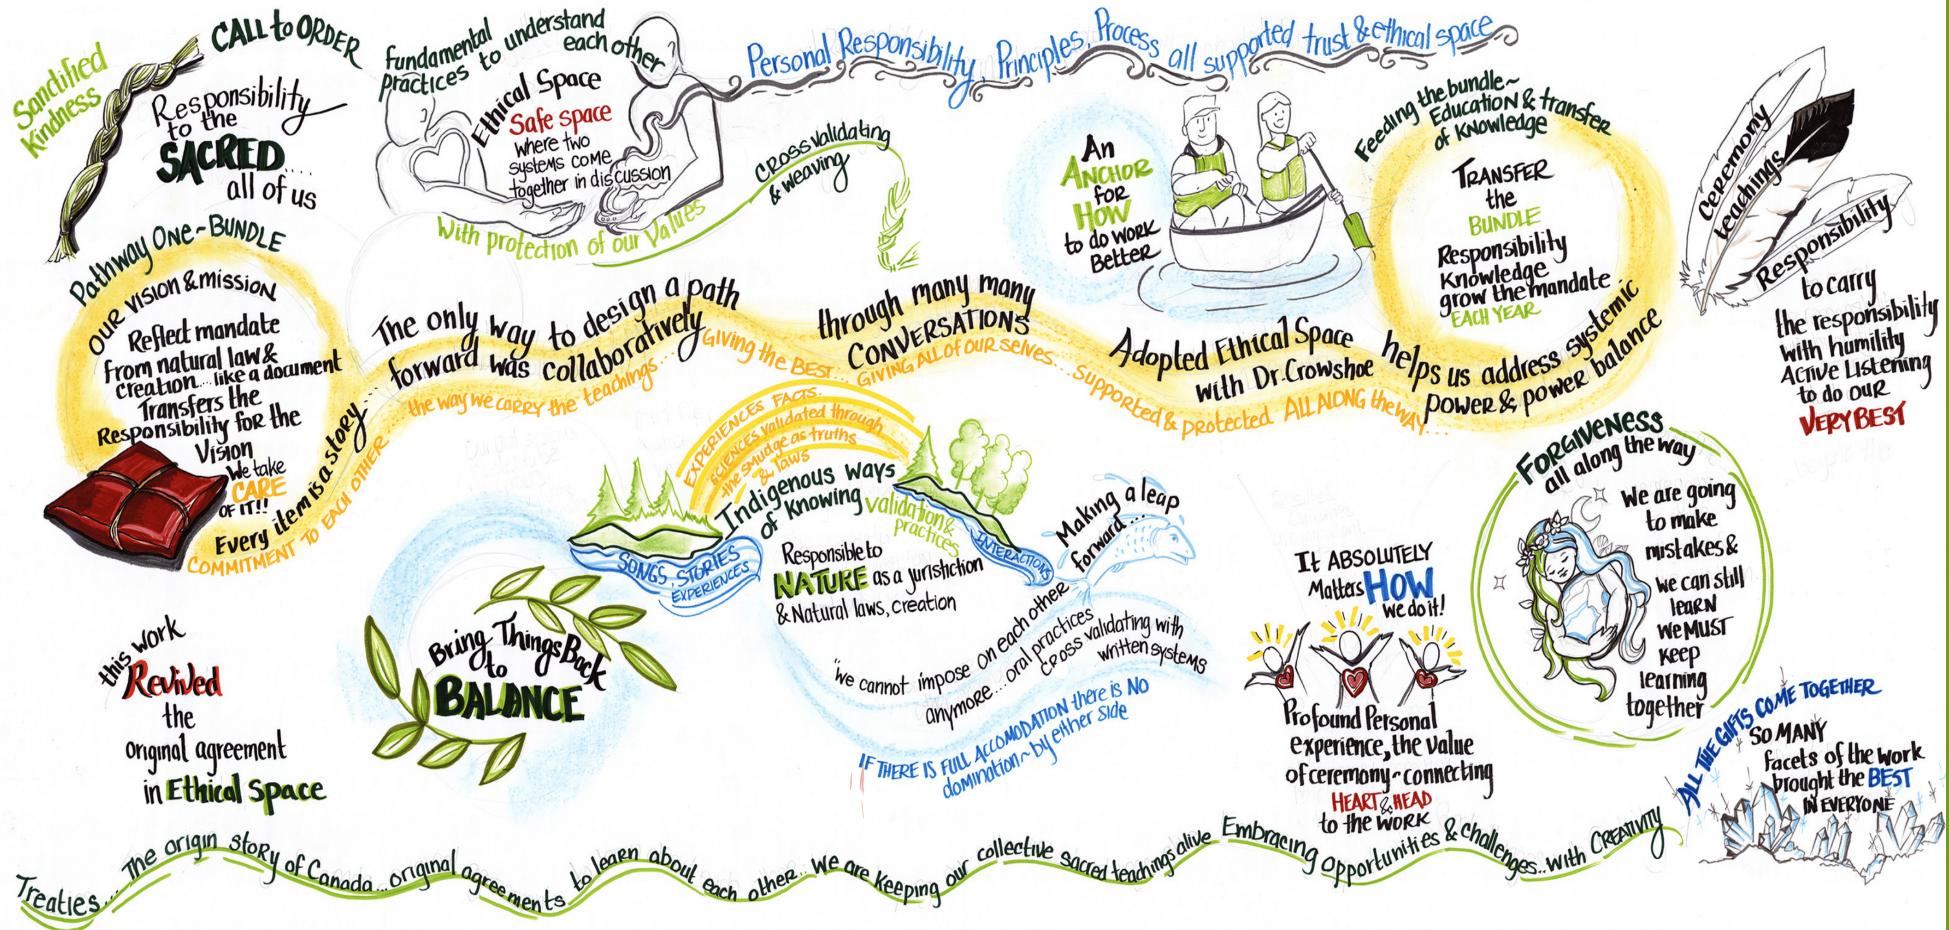 Sanctified
Kindness
CALL to ORDER
Responsibility
to the
SACRED....
all of us
fundamental
practices to understand
each other
Ethical Space
Safe space
where two
systems come
together in discussion
With protection of our Values
Cross validating
& weaving
Personal Responsibility, Principles, Process all supported trust & ethical space
An
ANCHOR
FOR
HOW
to do work
Better
Feeding the bundle~
Education & transfer
of Knowledge
TRANSFER
the
BUNDLE
Responsibility
Knowledge
grow the mandate
EACH YEAR
Ceremony
teachings
Responsibility
to carry
the responsibility
with humility
Active Listening
to do our
VERY BEST
Pathway One~BUNDLE
OUR VISION & MISSION
Reflect mandate
from natural law &
creation... like a document
Transfers the
Responsibility for the
Vision
We take
CARE
OF IT!!
Every item is a story....
COMMITMENT TO EACH OTHER...
The only way to design a path
forward was collaboratively
the way we carry the teachings....
Giving the BEST...
through many many
CONVERSATIONS
GIVING ALL OF OURSELVES...
supported & protected ALL ALONG the WAY....
Adopted Ethical Space
with Dr. Crowshoe
helps us address systemic
power & power balance
EXPERIENCES FACTS.
SCIENCES validated through
the smudge as truths
& laws
Indigenous ways
of Knowing
validation &
practices
SONGS, STORIES
EXPERIENCES
INTERACTIONS
Responsible to
NATURE as a juristiction
& Natural laws, creation
Making a leap
forward....
"We cannot impose on each other
anymore...oral practices
cross validating with
written systems
IF THERE IS FULL ACCOMODATION there is NO
domination~by either side
Bring Things Back
to
BALANCE
this work
Revived
the
original agreement
in Ethical Space
It ABSOLUTELY
Matters HOW
we do it!
Profound Personal
experience, the value
of ceremony~connecting
HEART & HEAD
to the WORK
FORGIVENESS
all along the way
We are going
to make
mistakes &
we can still
learn
we MUST
keep
learning
together
ALL THE GIFTS COME TOGETHER
SO MANY
facets of the work
brought the BEST
IN EVERYONE
Treaties... The origin story of Canada...original agreements to learn about each other... we are keeping our collective sacred teachings alive Embracing Opportunities & challenges...with CREATIVITY